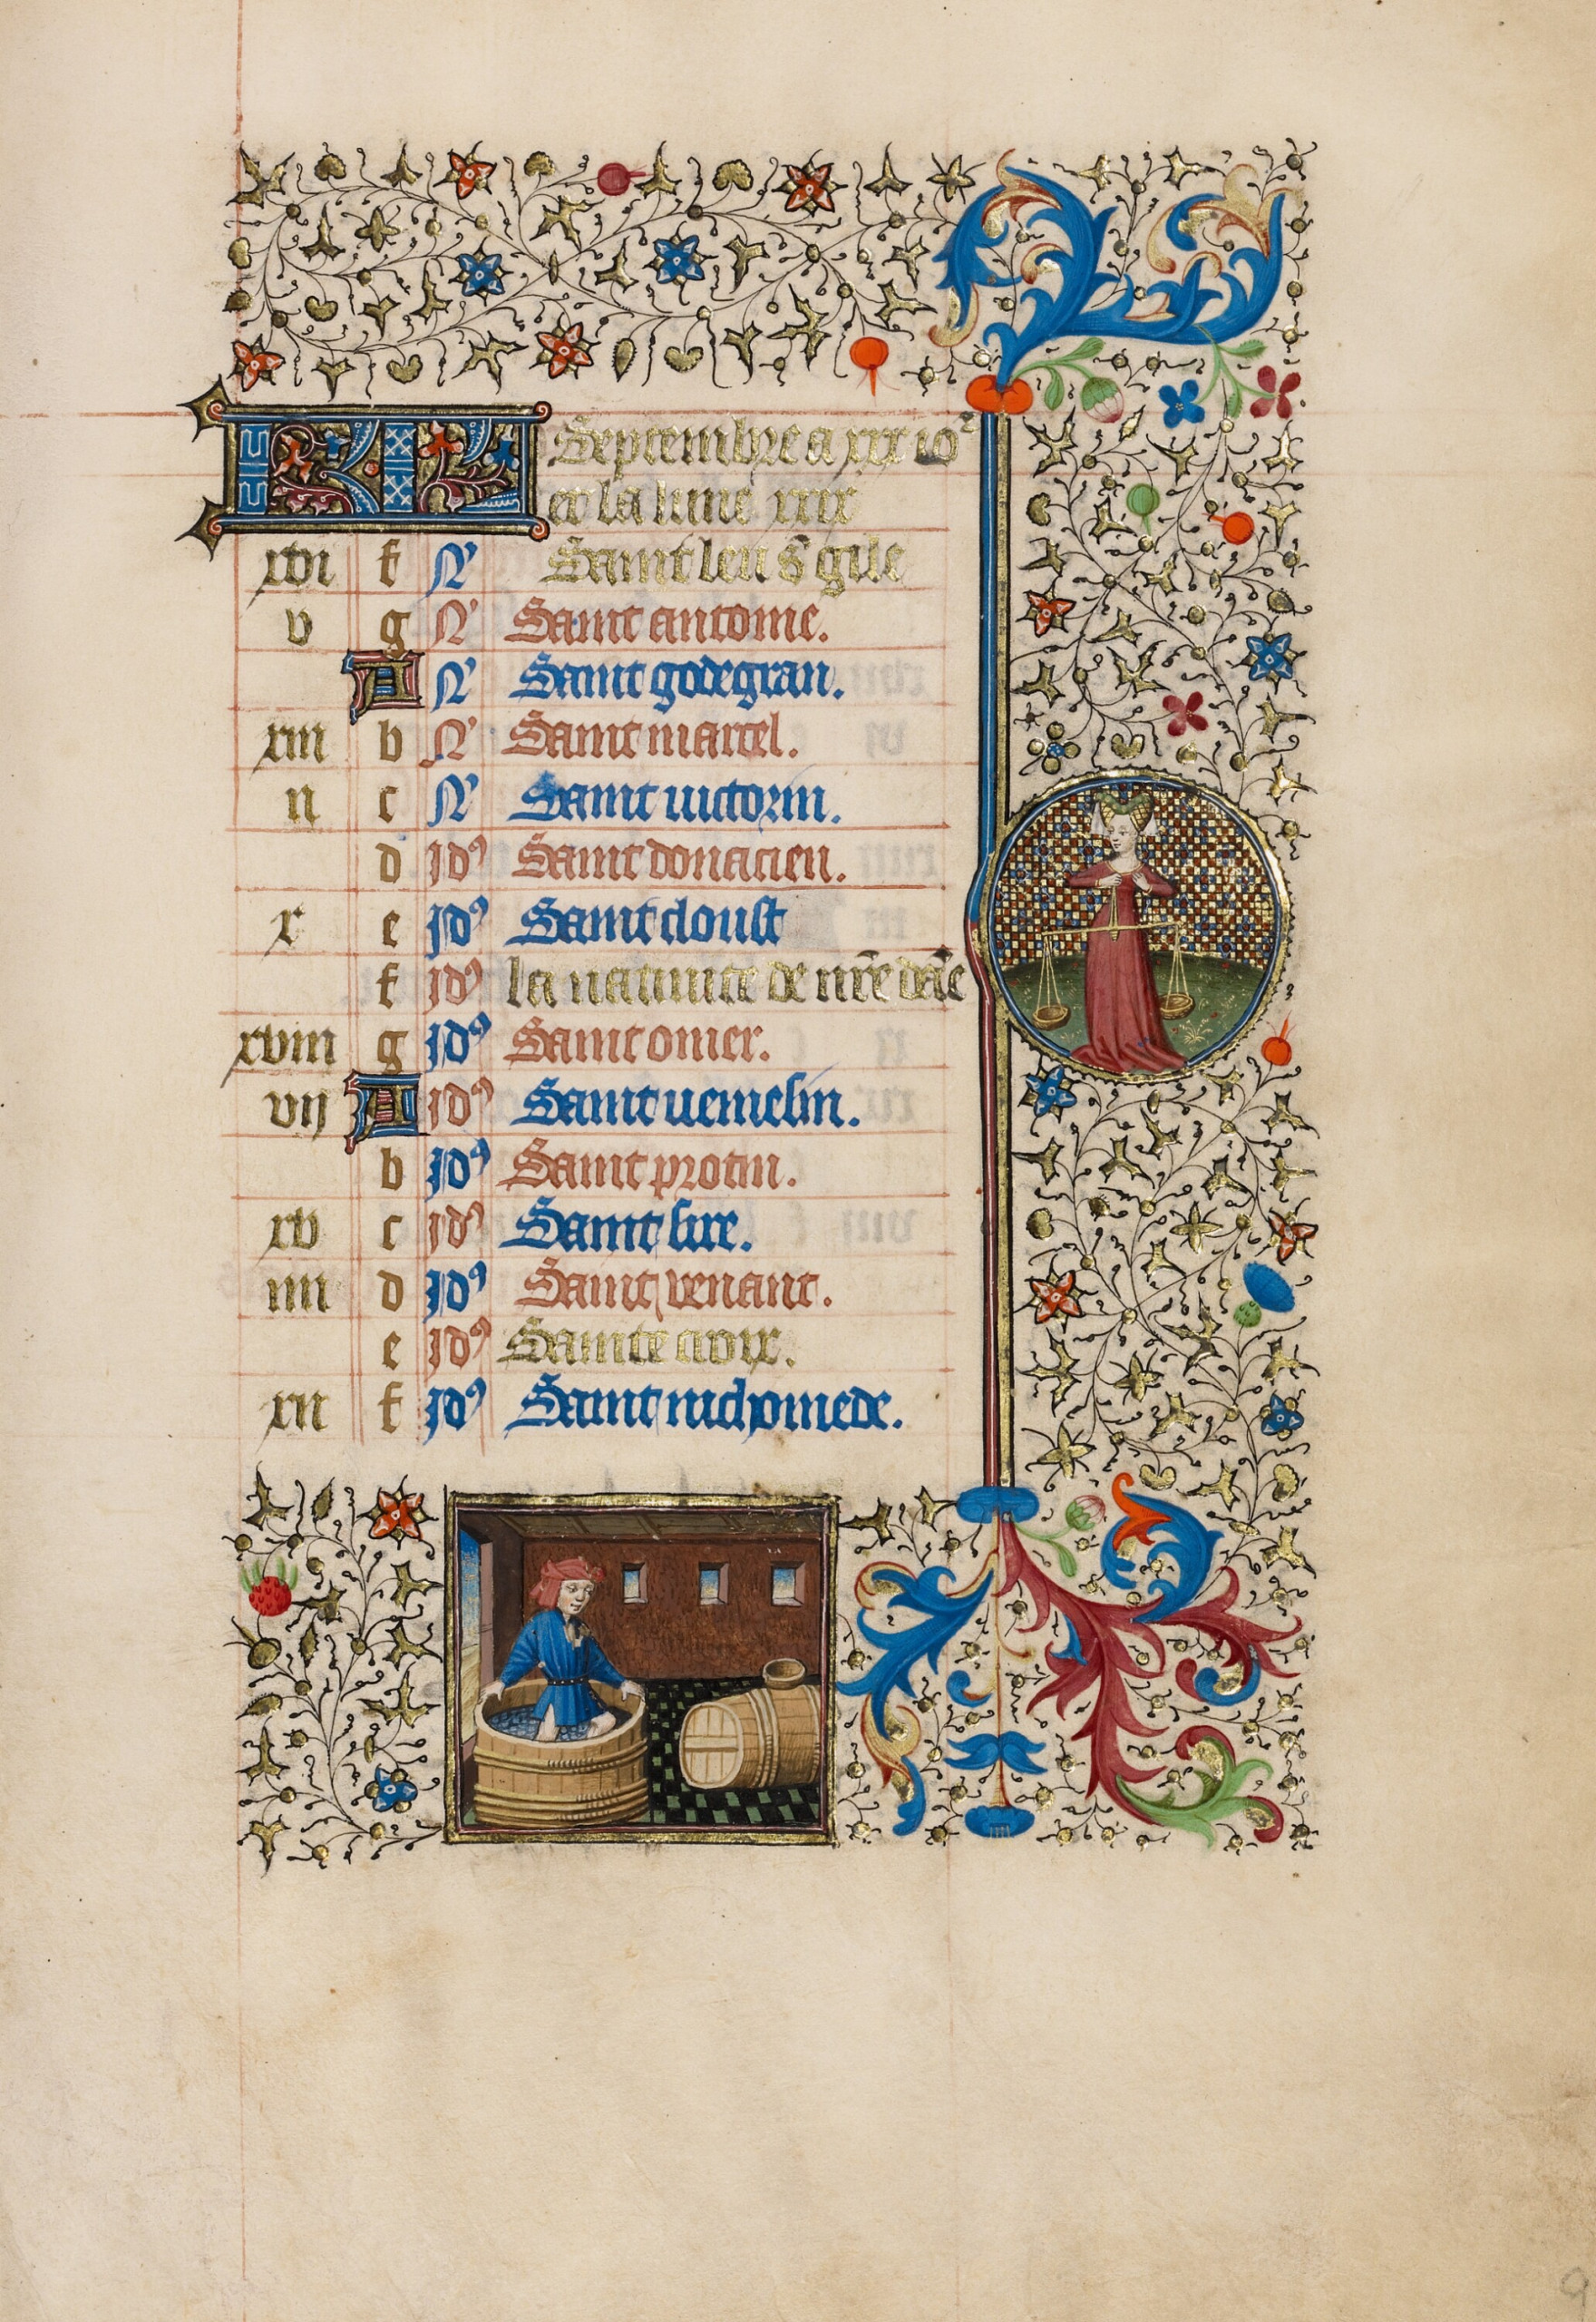 KL Septembre a xxx io^r
et la lune xxix
xvi f N' Saint leu s gile
v g N' Saint antoine.
A N' Saint godegran.
xiii b N' Saint marcel.
ii c N' Saint victorin.
d id9 Saint donacien.
x e id9 Saint cloust
f id9 la nativite de nr̄e dāe
xviii g id9 Saint omer.
vij A id9 Saint vemelin.
b id9 Saint protin.
xv c id9 Saint sire.
iiii d id9 Saint venant.
e id9 Sainte croix.
xii f id9 Saint nichomede.
9